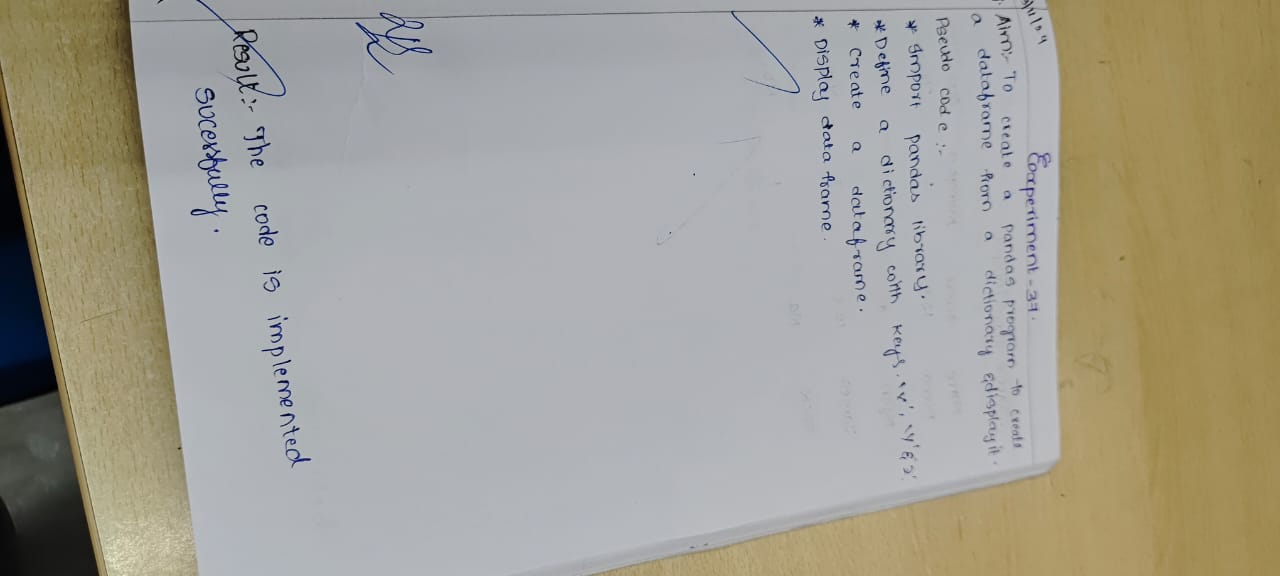 Experiment-37.
Aim:- To create a pandas program to create
a dataframe from a dictionary & display it.
Pseudo code:-
* Import pandas library.
* Define a dictionary with keys. 'x', 'y' & z'
* Create a dataframe.
* Display data frame.
Result:- The code is implemented
sucessfully.